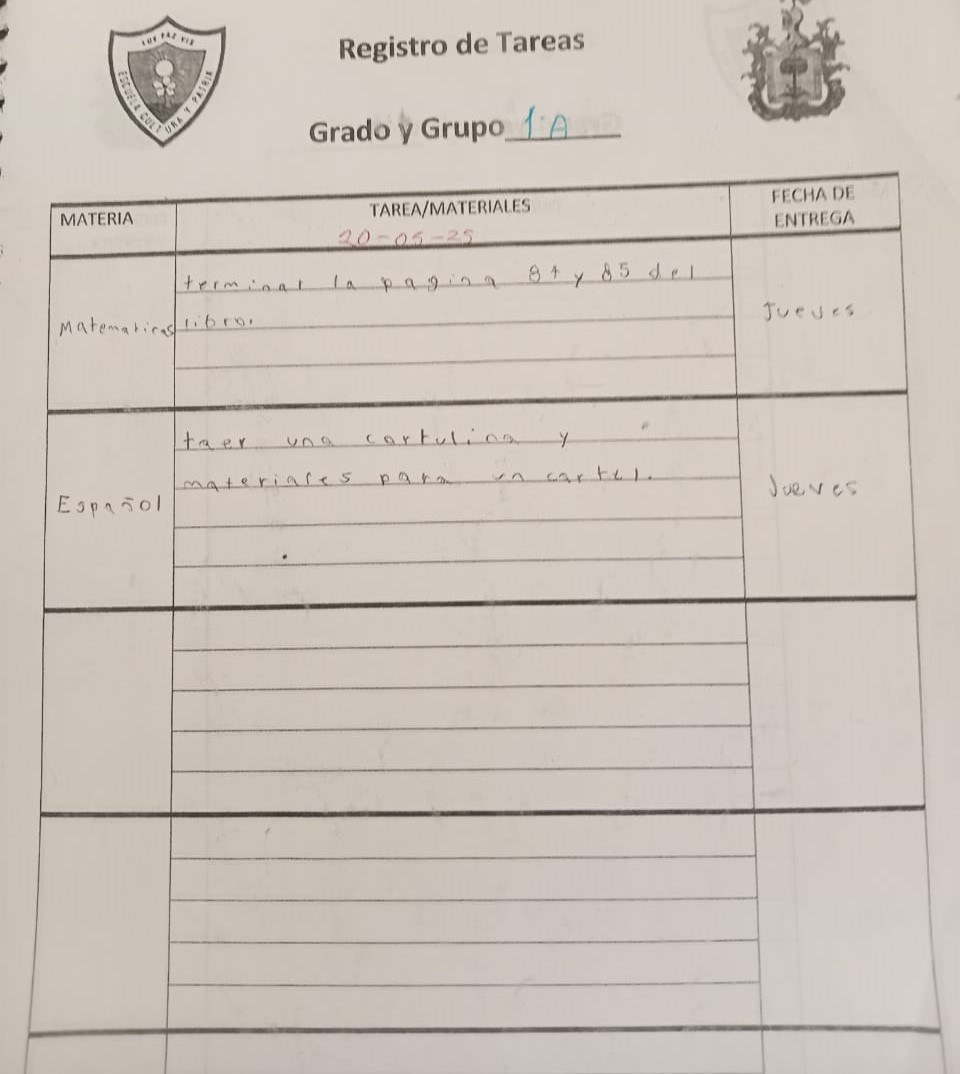 LUX PAZ VIS
ESCUELA CULTURA Y PATRIA
Registro de Tareas
Grado y Grupo 1°A
MATERIA
TAREA/MATERIALES
FECHA DE
ENTREGA
20-05-25
Matematicas
terminar la pagina 84 y 85 del
libro.
Jueves
Español
taer una cartulina y
materiales para un cartel.
Jueves